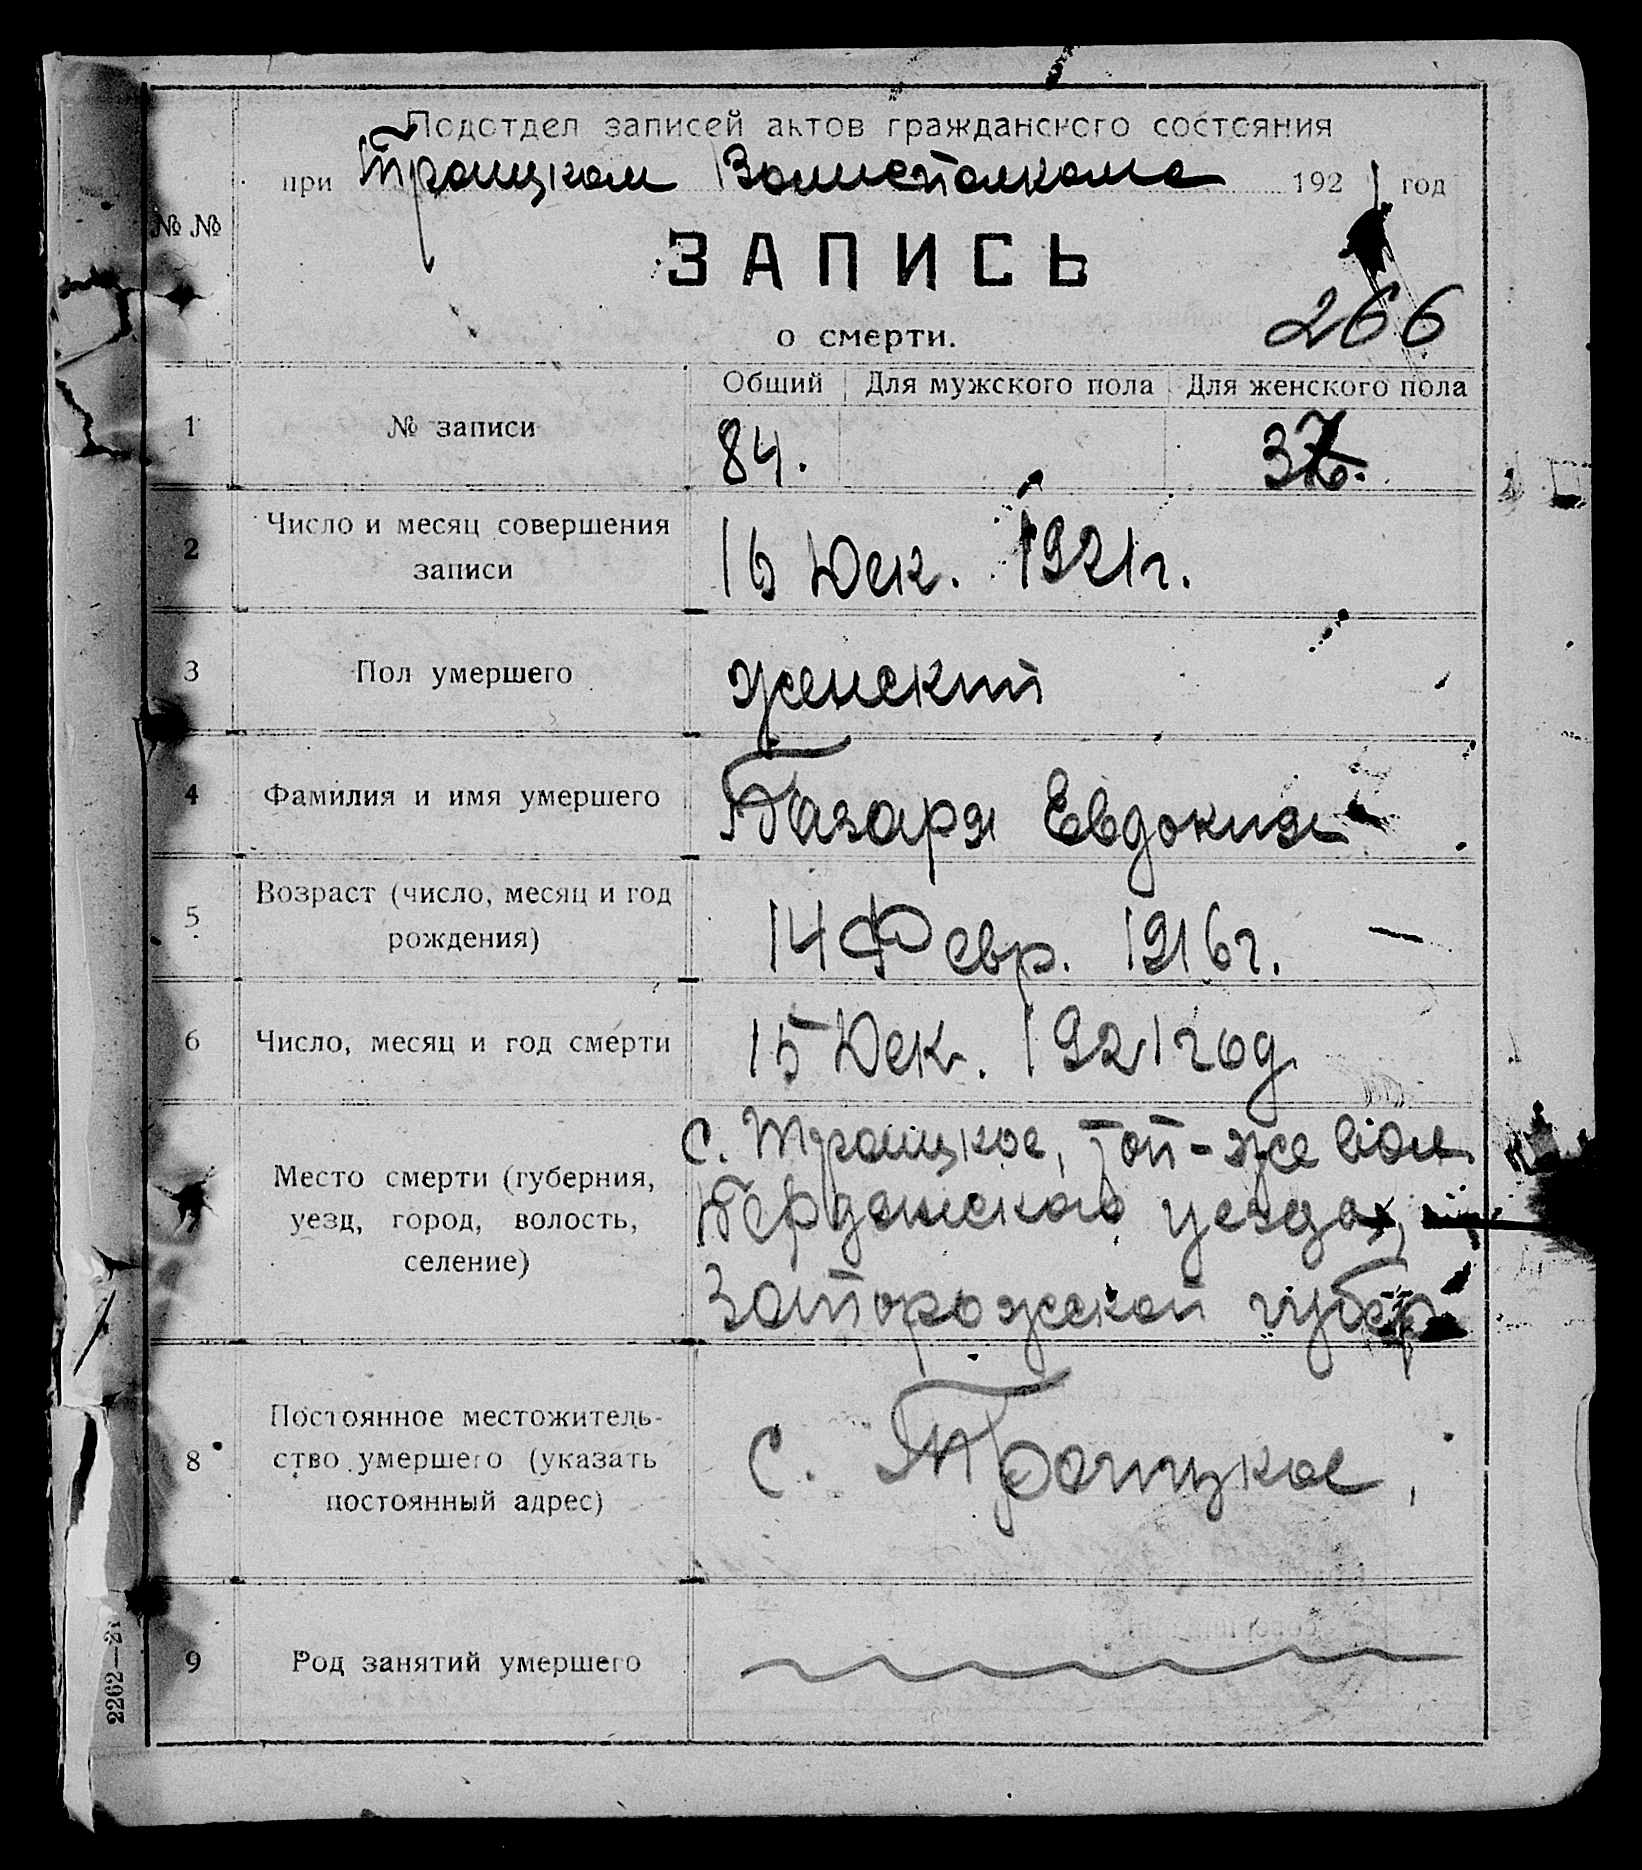 Подотдел записей актов гражданского состояния
при Троицком Волисполкоме 1921 год
№ №
ЗАПИСЬ
о смерти.
266
Общий Для мужского пола Для женского пола
1 № записи 84.
2 Число и месяц совершения
записи
16 Дек. 1921г.
3 Пол умершего женский
4 Фамилия и имя умершего Базаря Евдокия
5 Возраст (число, месяц и год
рождения)
14 Февр. 1916г.
6 Число, месяц и год смерти 15 Дек. 1921 год
Место смерти (губерния,
уезд, город, волость,
селение)
с. Троицкое, той-же вол.
Бердянского уезда,
Запорожской губер
8 Постоянное местожитель-
ство умершего (указать
постоянный адрес)
с. Троицкое,
9 Род занятий умершего
2262—21